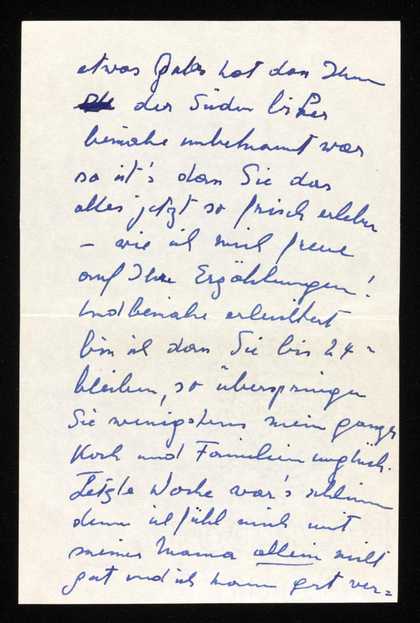 etwas Gutes hat dass Ihnen
der Süden bisher
beinahe unbekannt war
so ist's dass Sie das
alles jetzt so frisch erleben
– wie ich mich freue
auf Ihre Erzählungen!
Und beinahe erleichtert
bin ich dass Sie bis 24 =
bleiben, so überspringen
Sie wenigstens mein ganzes
Koch und Familienunglück.
Letzte Woche war's schlimm
denn ich fühl mich mit
meiner Mama allein nicht
gut und ich kann erst ver=